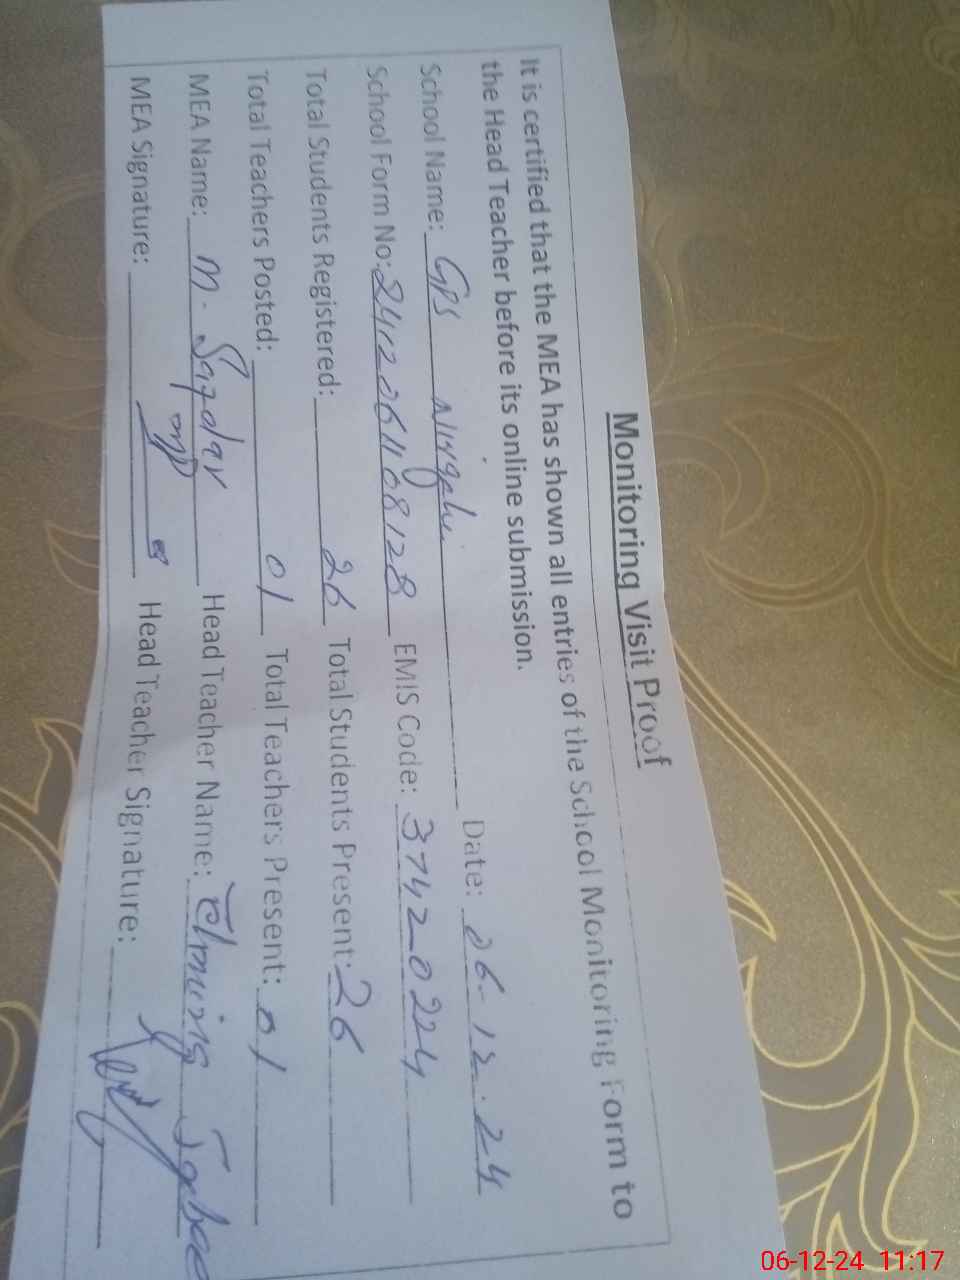 Monitoring Visit Proof
It is certified that the MEA has shown all entries of the School Monitoring Form to
the Head Teacher before its online submission.
School Name: GPS Date: 06-12-24
School Form No: EMIS Code: 37420224
Total Students Registered: 26 Total Students Present: 26
Total Teachers Posted: 01 Total Teachers Present: 01
MEA Name: M. Safdar Head Teacher Name:
MEA Signature: Head Teacher Signature:
06-12-24 11:17